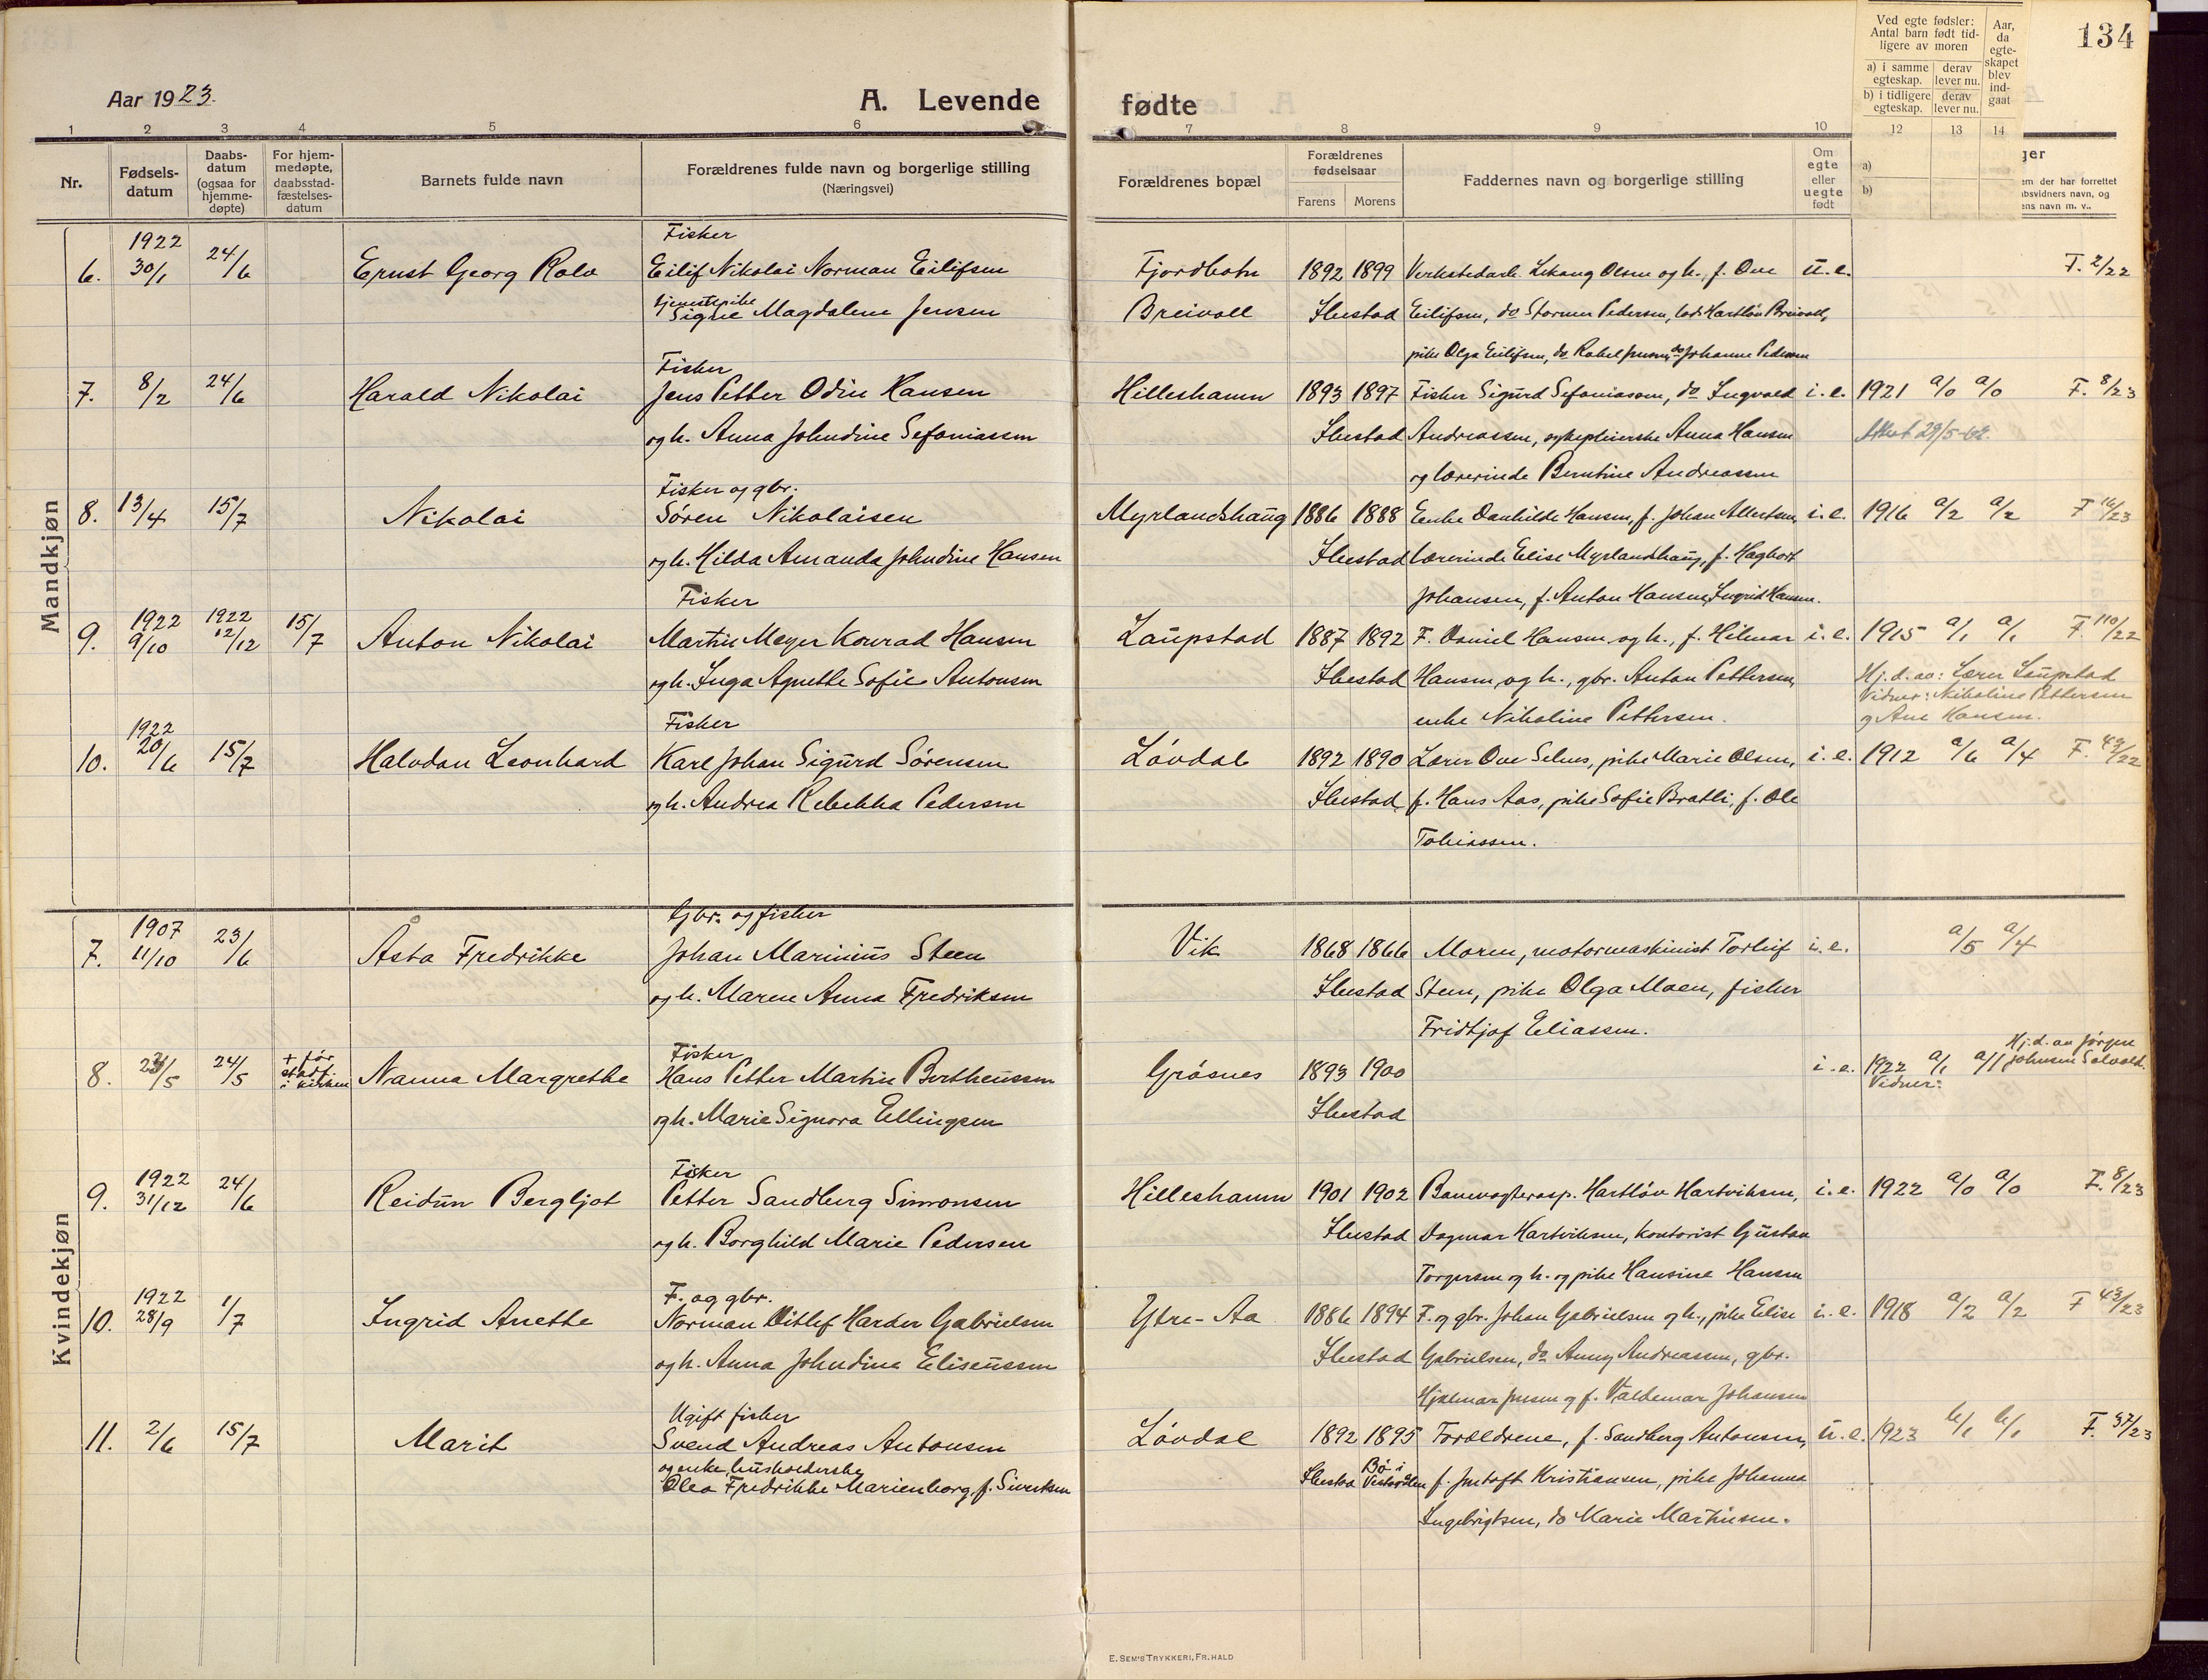 Aar 1923.
A. Levende fødte
134
Ved egte fødsler: Antal barn født tidligere av moren
a) i samme egteskap. derav lever nu.
b) i tidligere egteskap. derav lever nu.
Aar, da egteskapet blev indgaat
1 2 3 4 5 6 7 8 9 10 12 13 14
Nr.
Fødselsdatum
Daabsdatum (ogsaa for hjemmedøpte)
For hjemmedøpte, daabsstadfæstelsesdatum
Barnets fulde navn
Forældrenes fulde navn og borgerlige stilling
(Næringsvei)
Forældrenes bopæl
Forældrenes fødselsaar
Farens Morens
Faddernes navn og borgerlige stilling
Om egte eller uegte født
a)
b)
ger
em der har forrettet
bsvidners navn, og
ens navn m. v..
Mandkjøn
Fisker
6. 1922 30/1 24/6 Ernst Georg Rolv Eilif Nikolai Norman Eilifsen Fjordbotn 1892 1899 Verkstedarb. Olsen og h., f. Ove u.e. F. 2/22
tjenestepike Signe Magdalene Jensen Breivoll Ibestad Eilifsen, do Stormer Pedersen, Hartløv Breivoll,
pike Olga Eilifsen, do Rakel Jensen, do Johanne Pedersen
Fisker
7. 8/2 24/6 Harald Nikolai Jens Petter Odin Hansen Hilleshamn 1893 1897 Fisker Sigurd Sefaniassen, do Ingvald i.e. 1921 a/0 a/0 F. 8/23
og h. Anna Johndine Sefaniassen Ibestad Andreassen, Anna Hansen 29/5-62.
og lærerinde Berntine Andreassen
Fisker og gbr.
8. 13/4 15/7 Nikolai Søren Nikolaisen Myrlandshaug 1886 1888 Enke Danhilde Hansen, f. Johan Albertsen, i.e. 1916 a/2 a/2 F 16/23
og h. Hilda Amanda Johndine Hansen Ibestad Lærerinde Elise Myrlandshaug, f. Hagbart
Johansen, f. Anton Hansen, Ingrid Hansen.
Fisker
9. 1922 9/10 1922 12/12 15/7 Anton Nikolai Martin Meyer Konrad Hansen Laupstad 1887 1892 F. Daniel Hansen og h., f. Hilmar i.e. 1915 a/1 a/1 F. 110/22
og h. Inga Agnethe Sofie Antonsen Ibestad Hansen og h., gbr. Anton Pettersen, Hj.d. av: Lærer Laupstad
enke Nikoline Pettersen. Vidner: Nikoline Pettersen
og Ane Hansen.
Fisker
10. 1922 20/6 15/7 Halvdan Leonhard Karl Johan Sigurd Sørensen Løvdal 1892 1890 Lærer Ove Selnes, pike Marie Olsen, i.e. 1912 a/6 a/4 F. 49/22
og h. Andrea Rebekka Pedersen Ibestad f. Hans Aas, pike Sofie Bratli, f. Ole
Tobiassen.
Kvindekjøn
Gbr. og fisker
7. 1907 11/10 23/6 Åsta Fredrikke Johan Marinius Steen Vik 1868 1866 Moren, motormaskinist Torleif i.e. a/5 a/4
og h. Maren Anna Fredriksen Ibestad Steen, pike Olga Moen, fisker
Fridtjof Eliassen.
Fisker
8. 23/5 24/5 + før stadf. i kirken Nanna Margrethe Hans Petter Martin Bertheussen Grøsnes 1893 1900 i.e. 1922 a/1 a/1 Hj.d. av Jørgen Johnsen
Vidner:
og h. Marie Signora Ellingsen Ibestad
Fisker
9. 1922 31/12 24/6 Reidun Bergljot Petter Sandberg Simonsen Hilleshamn 1901 1902 Banevogterasp. Hartløv Hartviksen, i.e. 1922 a/0 a/0 F. 8/23
og h. Borghild Marie Pedersen Ibestad Dagmar Hartviksen, kontorist Gustav
Torgersen og h. og pike Hansine Hansen
F. og gbr.
10. 1922 28/9 1/7 Ingrid Anethe Norman Ditlef Harder Gabrielsen Ytre-Aa 1886 1894 F. og gbr. Johan Gabrielsen og h., pike Elise i.e. 1918 a/2 a/2 F 43/23
og h. Anna Johndine Eliseussen Ibestad Gabrielsen, do Anny Andreassen, gbr.
Hjalmar Jensen og f. Valdemar Johansen
Ugift fisker
11. 2/6 15/7 Marit Svend Andreas Antonsen Løvdal 1892 1895 Forældrene, f. Sandberg Antonsen, u.e. 1923 b/1 b/1 F. 37/23
og enke, husholderske
Olea Fredrikke Marienborg f. Sivertsen Ibestad Bø i Vesterålen f. Jentoft Kristiansen, pike Johanna
Ingebrigtsen, do Marie Martinsen.
E. SEM'S TRYKKERI, FR.HALD